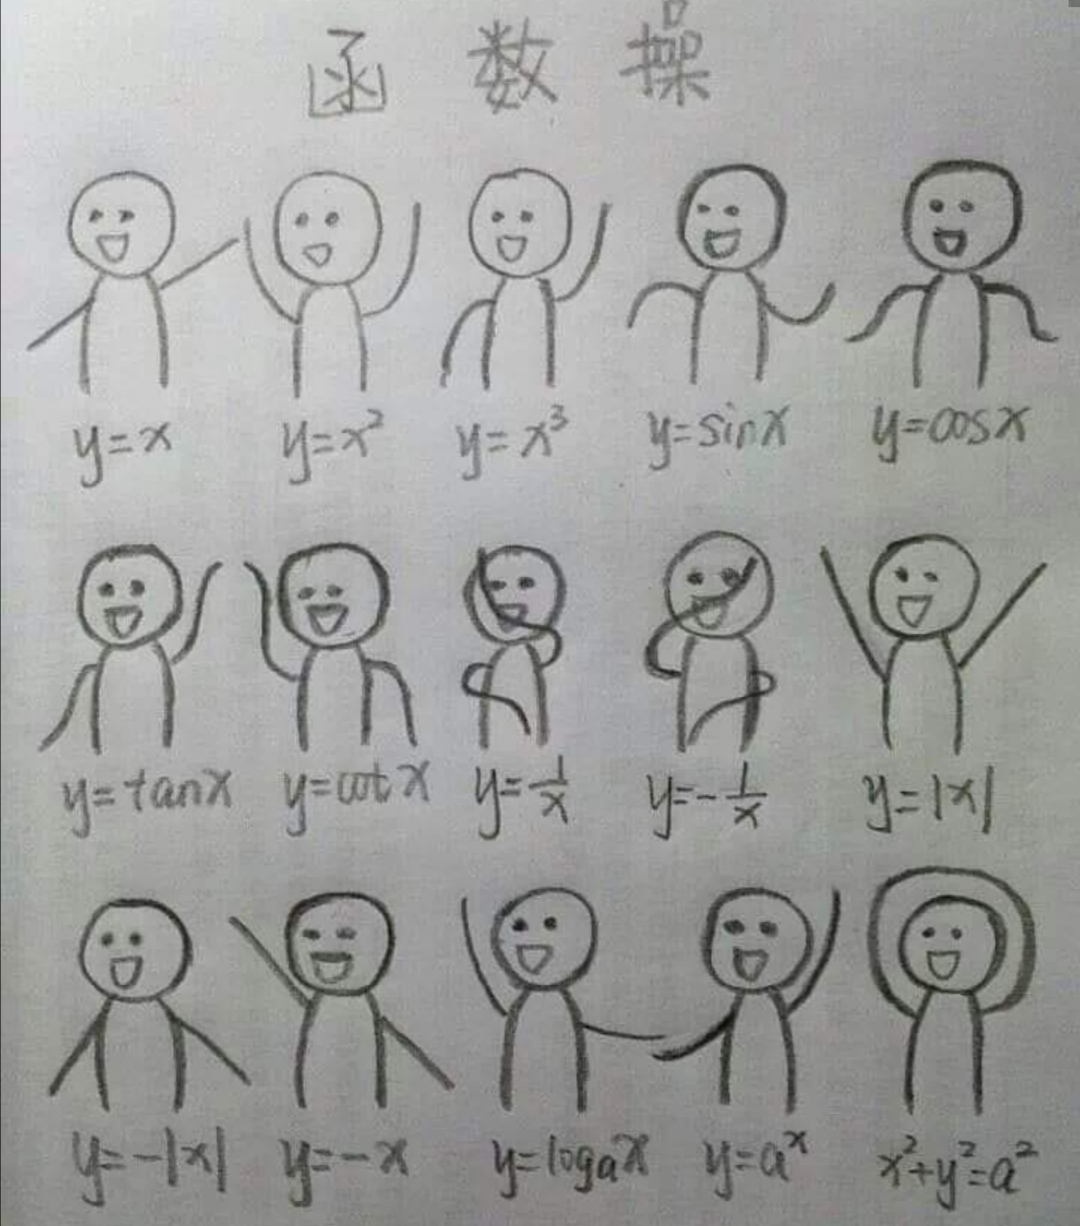 函 数 操
y=x y=x² y=x³ y=sinx y=cosx
y=tanx y=cotx y=1/x y=-1/x y=|x|
y=-|x| y=-x y=logₐx y=aˣ x²+y²=a²